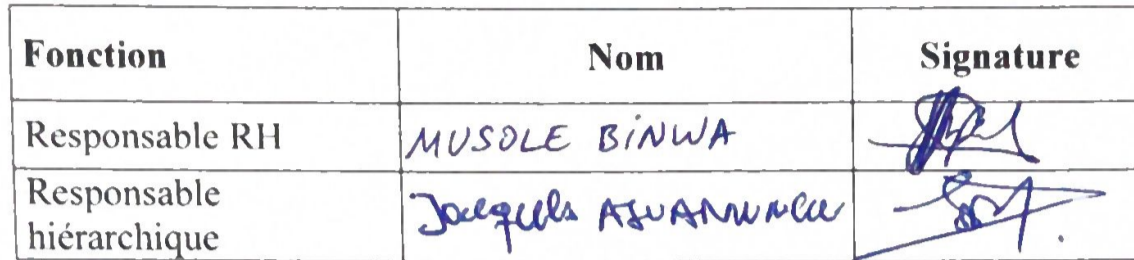 Fonction Nom Signature
Responsable RH MUSOLE BINWA
Responsable
hiérarchique Jacques